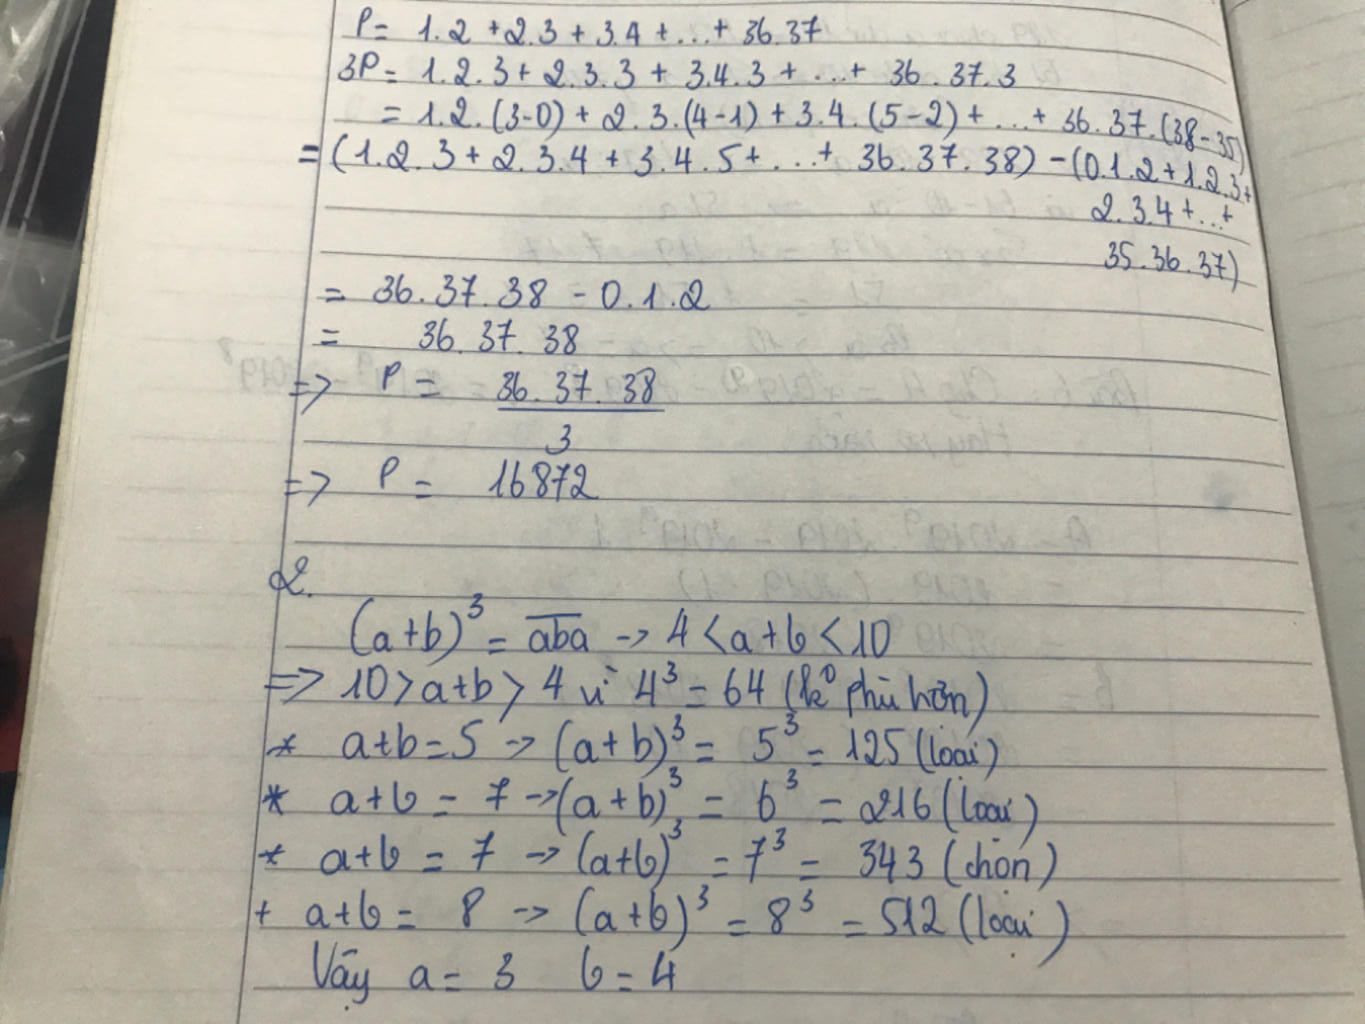 P = 1.2 + 2.3 + 3.4 + ... + 36.37
3P = 1.2.3 + 2.3.3 + 3.4.3 + ... + 36.37.3
= 1.2.(3-0) + 2.3.(4-1) + 3.4.(5-2) + ... + 36.37.(38-35)
= (1.2.3 + 2.3.4 + 3.4.5 + ... + 36.37.38) - (0.1.2 + 1.2.3 +
2.3.4 + ... +
35.36.37)
= 36.37.38 - 0.1.2
= 36.37.38
=> P = 36.37.38
3
=> P = 16872
2.
(a+b)³ = \overline{aba} -> 4 < a+b < 10
=> 10 > a+b > 4 vì 4³ = 64 (k⁰ phù hợp)
* a+b = 5 -> (a+b)³ = 5³ = 125 (loại)
* a+b = 7 -> (a+b)³ = 6³ = 216 (loại)
* a+b = 7 -> (a+b)³ = 7³ = 343 (chọn)
+ a+b = 8 -> (a+b)³ = 8³ = 512 (loại)
Vậy a = 3 b = 4